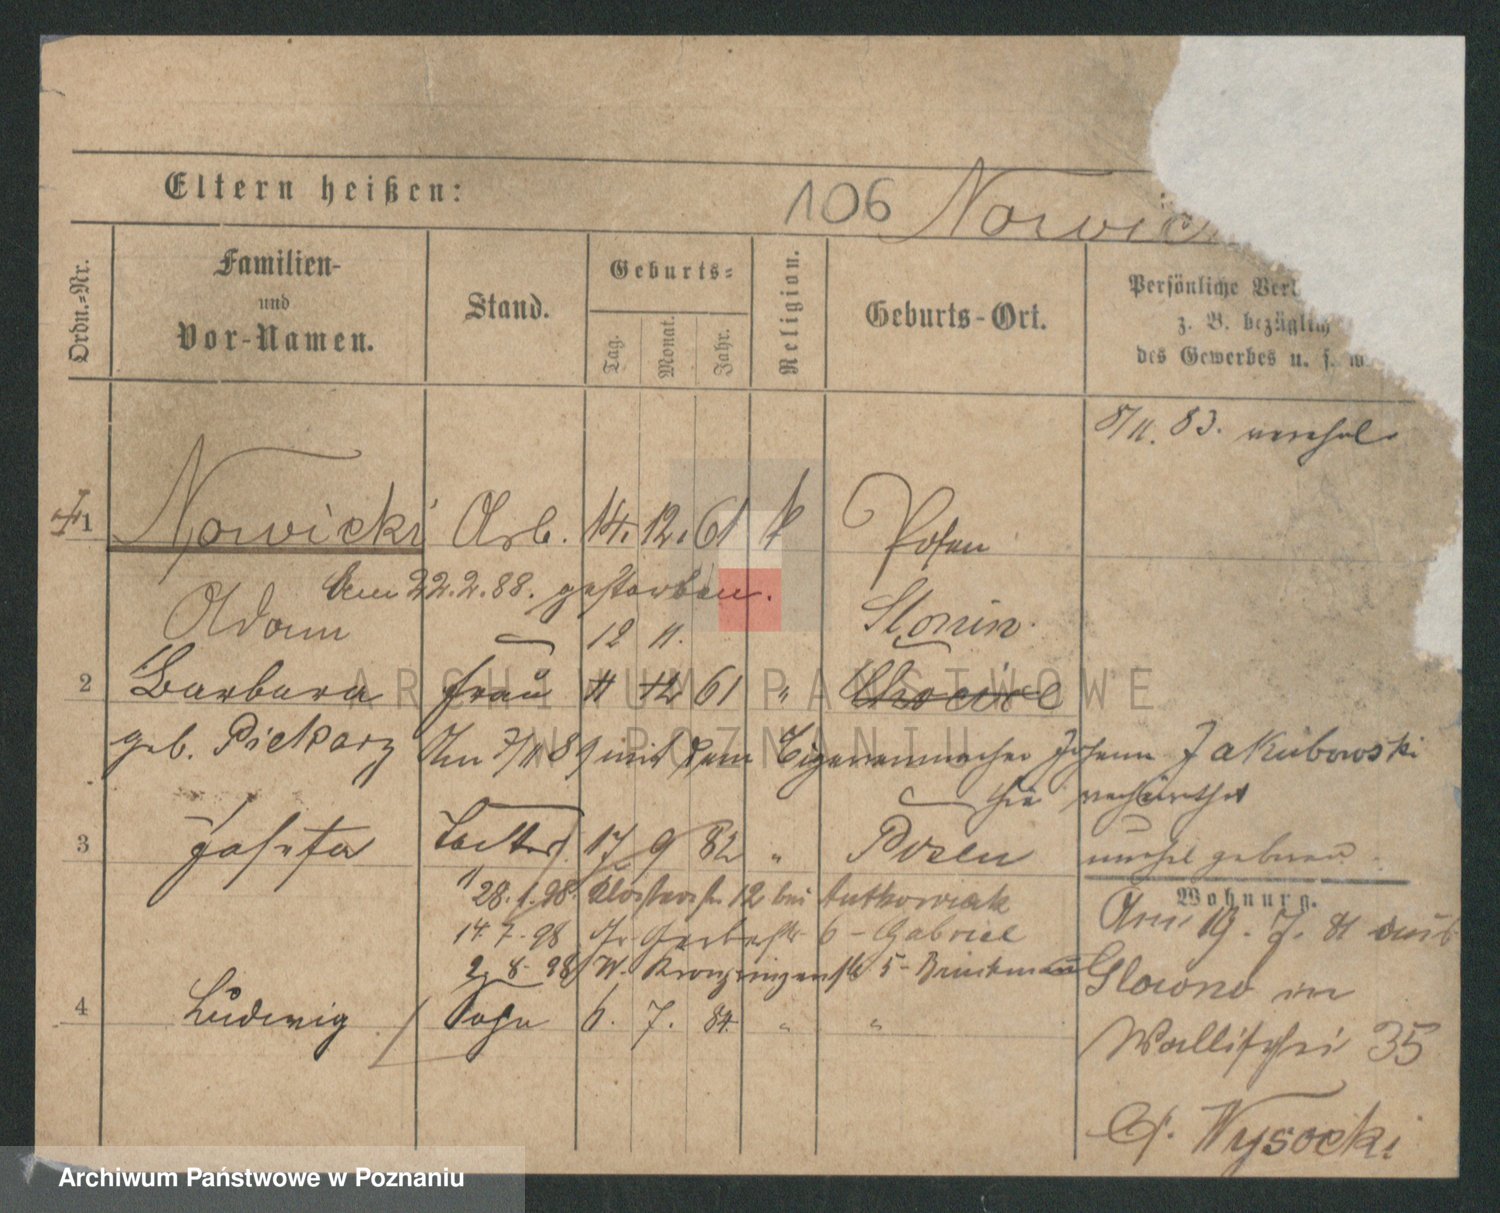 Eltern heißen:
106 Nowic
Ordn.-Nr.
Familien-
und
Vor-Namen.
Stand.
Geburts-
Tag.
Monat.
Jahr.
Religion.
Geburts-Ort.
Persönliche Ver
z. B. bezüglich
des Gewerbes u. s. w
8/11. 83.
1 Nowicki Arb. 14. 12. 61 k Posen
am 22.2.88. gestorben.
Adam 12 11. Slonin
2 Barbara Frau 11 12 61 "
geb. Piekarz Am 7/11 89 mit dem Cigarrenmacher Johann Jakubowski
hie verheirathet
3 Josefa Tochter 17 9 82 " Posen unehel geboren
28. 1. 98. Klosterstr. 12 bei Antkowiak
14. 7. 98 Gr. Gerberstr 6 - Gabriel
2. 8. 98 W. Kronprinzenstr 5 - Brinkmann
4 Ludwig Sohn 6. 7. 84. " "
Wohnung.
Am 19. 7. 81 aus
Glowno in
Wallischei 35
Wysocki
ARCHIWUM PAŃSTWOWE
W POZNANIU
Archiwum Państwowe w Poznaniu